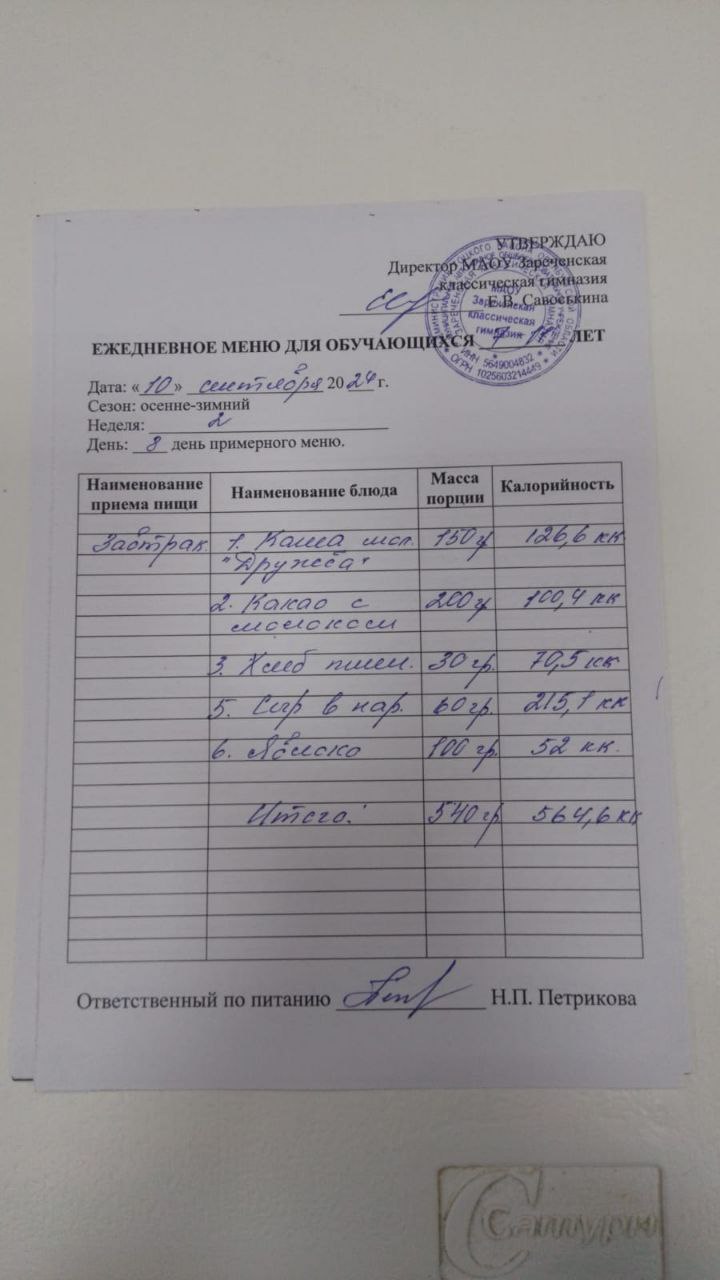 УТВЕРЖДАЮ
Директор МАОУ Зареченская
классическая гимназия
Е.В. Савоськина
МАОУ
Зареченская
классическая
гимназия
ИНН 5649004832
ОГРН 1025603214449
ЕЖЕДНЕВНОЕ МЕНЮ ДЛЯ ОБУЧАЮЩИХСЯ ЛЕТ
Дата: «10» сентября 2024 г.
Сезон: осенне-зимний
Неделя: 2
День: 8 день примерного меню.
Наименование приема пищи Наименование блюда Масса порции Калорийность
Завтрак. 1. Каша мол. 150 гр 126,6 кк
"Дружба"
2. Какао с 200 гр 100,4 кк
молоком
3. Хлеб пшен. 30 гр. 70,5 кк
5. Сыр в нар. 60 гр. 215,1 кк
6. Яблоко 100 гр. 52 кк.
Итого: 540 гр 564,6 кк
Ответственный по питанию Н.П. Петрикова